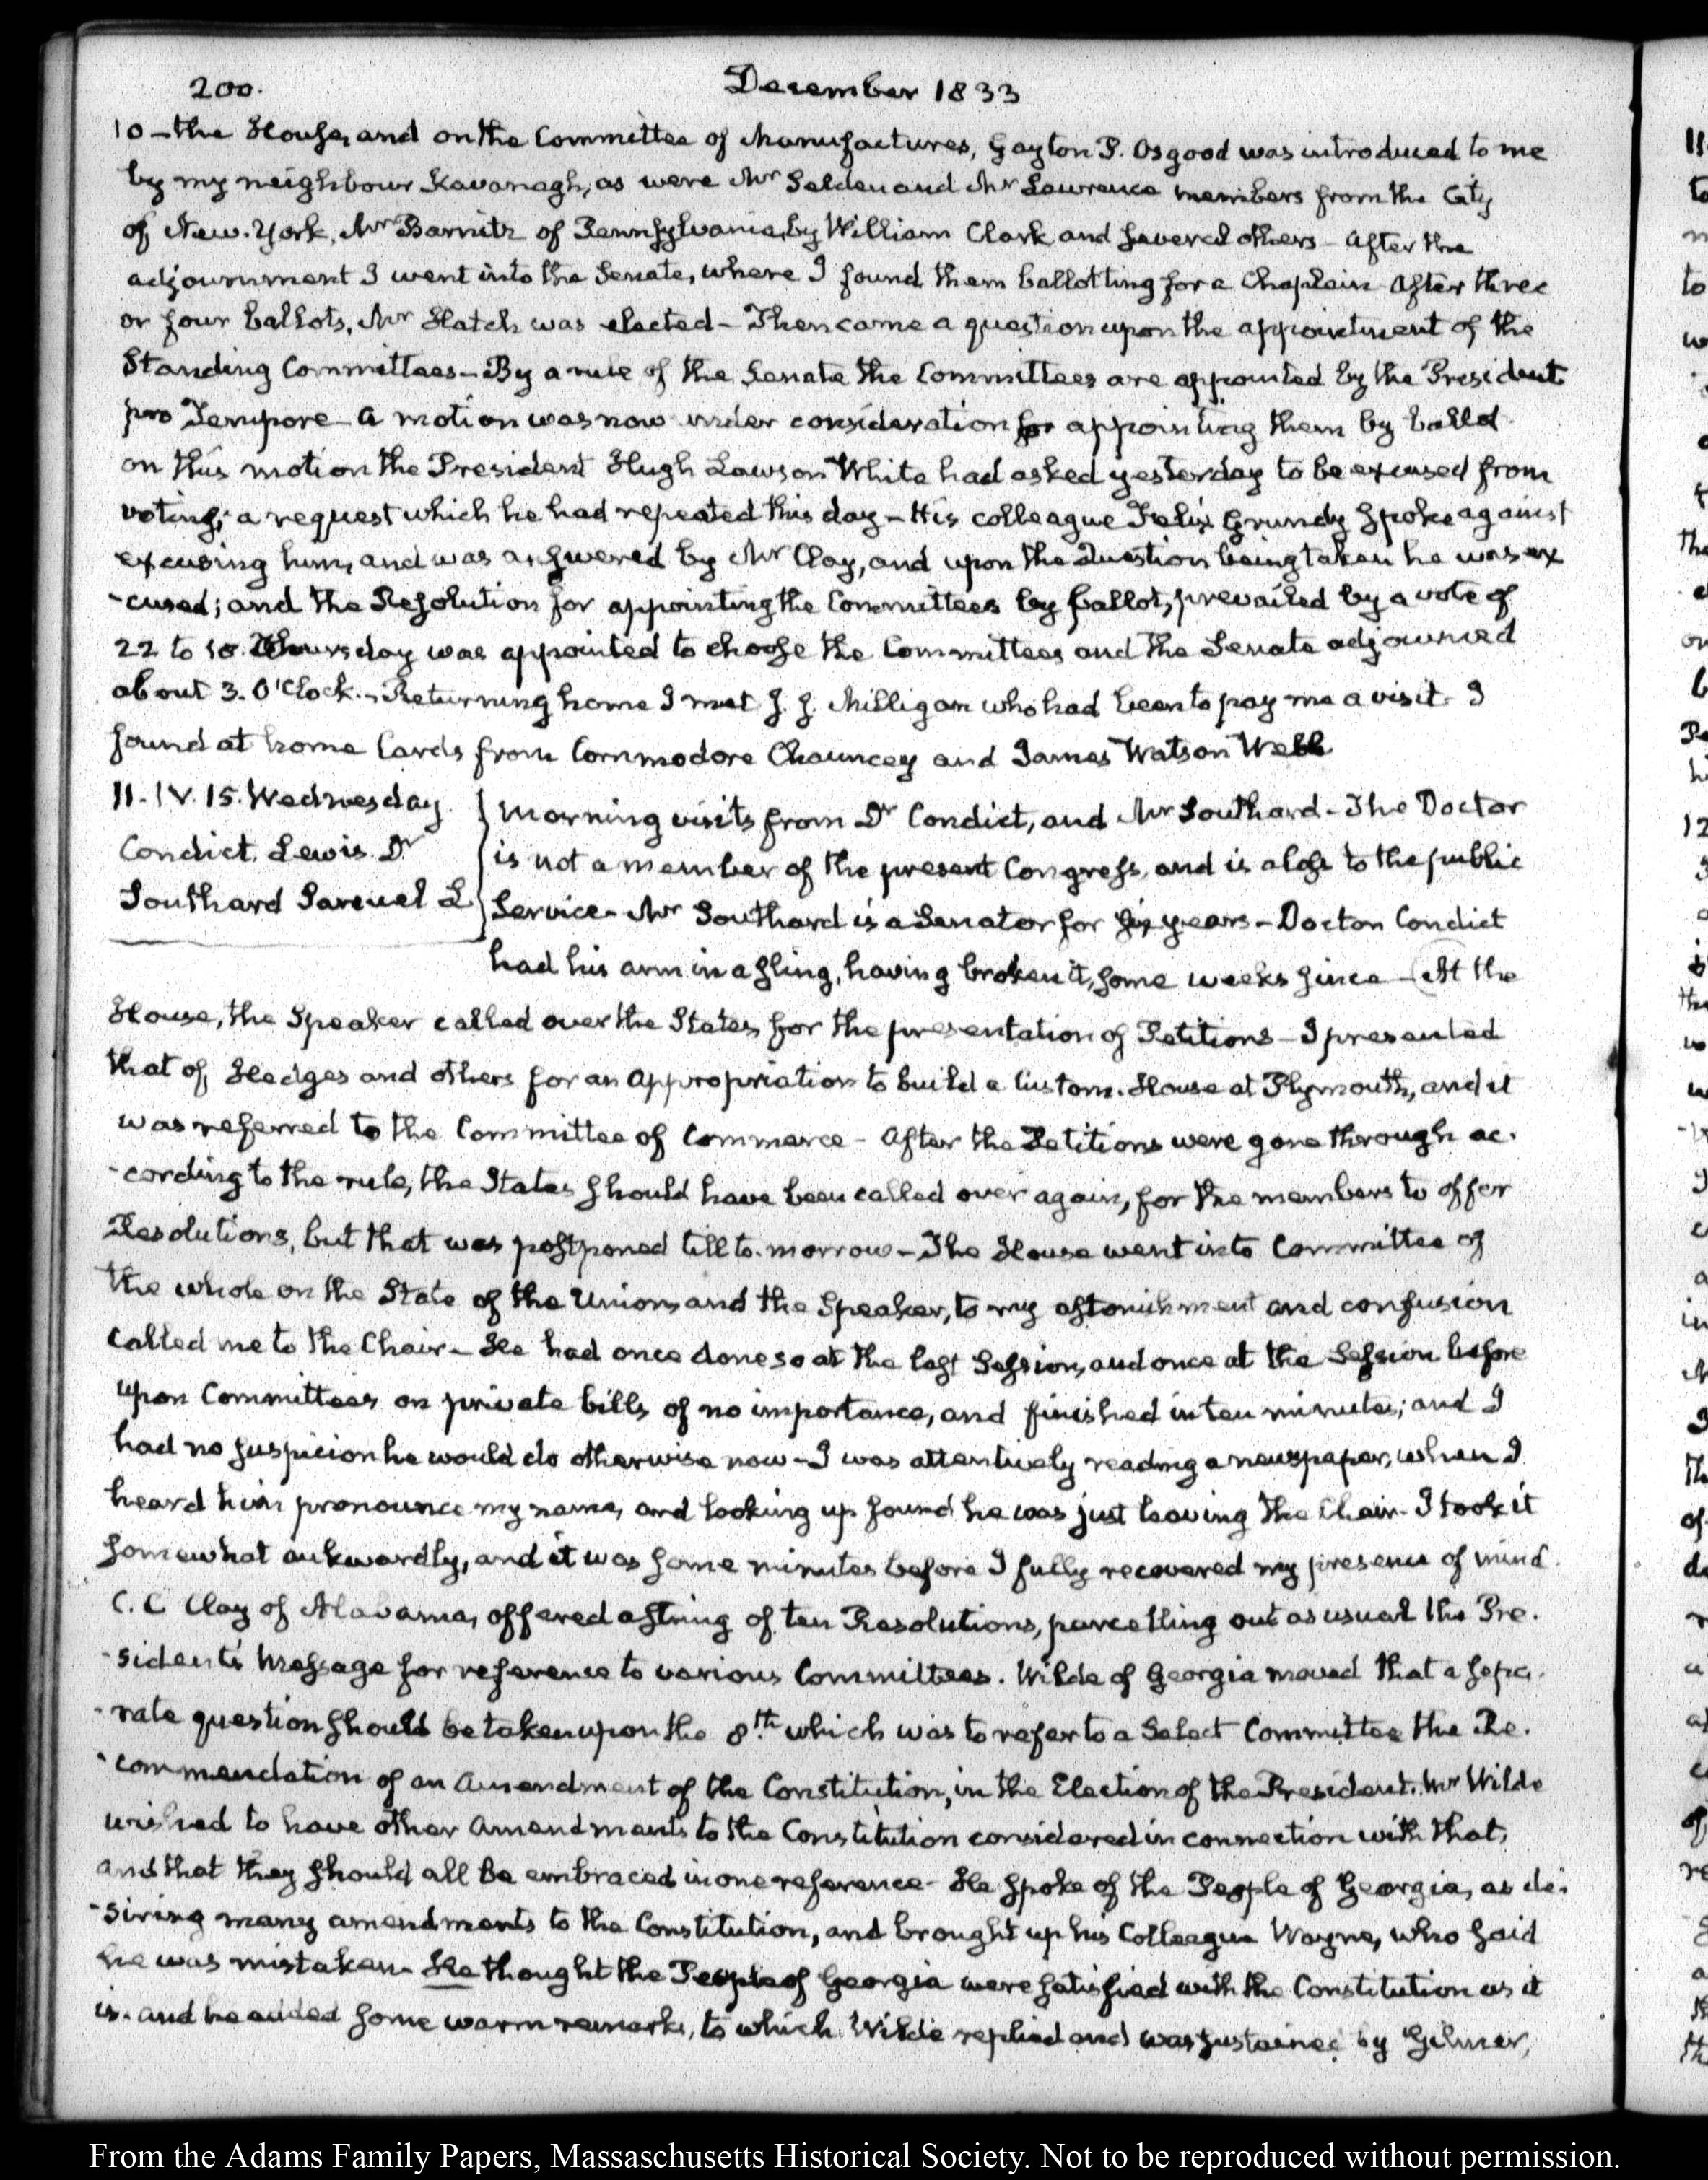 200.
December 1833
10 - the House, and on the Committee of Manufactures, Gayton P. Osgood was introduced to me
by my neighbour Kavanagh, as were Mr Selden and Mr Lawrence members from the City
of New-York, Mr Barnitz of Pennsylvania, by William Clark, and several others - After the
adjournment I went into the Senate, where I found them ballotting for a Chaplain After three
or four ballots, Mr Hatch was elected - Then came a question upon the appointment of the
Standing Committees - By a rule of the Senate the Committees are appointed by the President
pro Tempore - A motion was now under consideration for appointing them by ballot
on this motion the President Hugh Lawson White had asked yesterday to be excused from
voting; a request which he had repeated this day - His colleague Felix Grundy spoke against
excusing him, and was answered by Mr Clay, and upon the Question being taken he was ex
-cused; and the Resolution for appointing the Committees by ballot, prevailed by a vote of
22 to 18. Thursday was appointed to choose the Committees and the Senate adjourned
about 3. O'Clock. - Returning home I met J. J. Milligan who had been to pay me a visit. I
found at home Cards from Commodore Chauncey and James Watson Webb
11. IV. 15. Wednesday
Condict. Lewis Dr
Southard Samuel L
Morning visits from Dr Condict, and Mr Southard - The Doctor
is not a member of the present Congress, and is a loss to the public
Service - Mr Southard is a Senator for six years - Doctor Condict
had his arm in a sling, having broken it, some weeks since - At the
House, the Speaker called over the States for the presentation of Petitions - I presented
that of Hedges and others for an Appropriation to build a Custom-House at Plymouth, and it
was referred to the Committee of Commerce - After the Petitions were gone through ac-
-cording to the rule, the States should have been called over again, for the members to offer
Resolutions, but that was postponed till to-morrow - The House went into Committee of
the whole on the State of the Union, and the Speaker, to my astonishment and confusion
called me to the Chair - He had once done so at the last Session, and once at the Session before
upon Committees on private bills of no importance, and finished in ten minutes; and I
had no suspicion he would do otherwise now - I was attentively reading a newspaper, when I
heard him pronounce my name, and looking up found he was just leaving the Chair - I took it
somewhat aukwardly, and it was some minutes before I fully recovered my presence of mind.
C. C Clay of Alabama, offered a string of ten Resolutions, parcelling out as usual the Pre-
-sident's Message for reference to various Committees. Wilde of Georgia moved that a sepa-
-rate question should be taken upon the 8th which was to refer to a Select Committee the Re-
-commendation of an Amendment of the Constitution, in the Election of the President. Mr Wilde
wished to have other Amendments to the Constitution considered in connection with that,
and that they should all be embraced in one reference - He spoke of the People of Georgia, as de-
-siring many amendments to the Constitution, and brought up his Colleague Wayne, who said
he was mistaken - He thought the People of Georgia were satisfied with the Constitution as it
is. and he added some warm remarks, to which Wilde replied and was sustained by Gilmer,
From the Adams Family Papers, Massachusetts Historical Society. Not to be reproduced without permission.